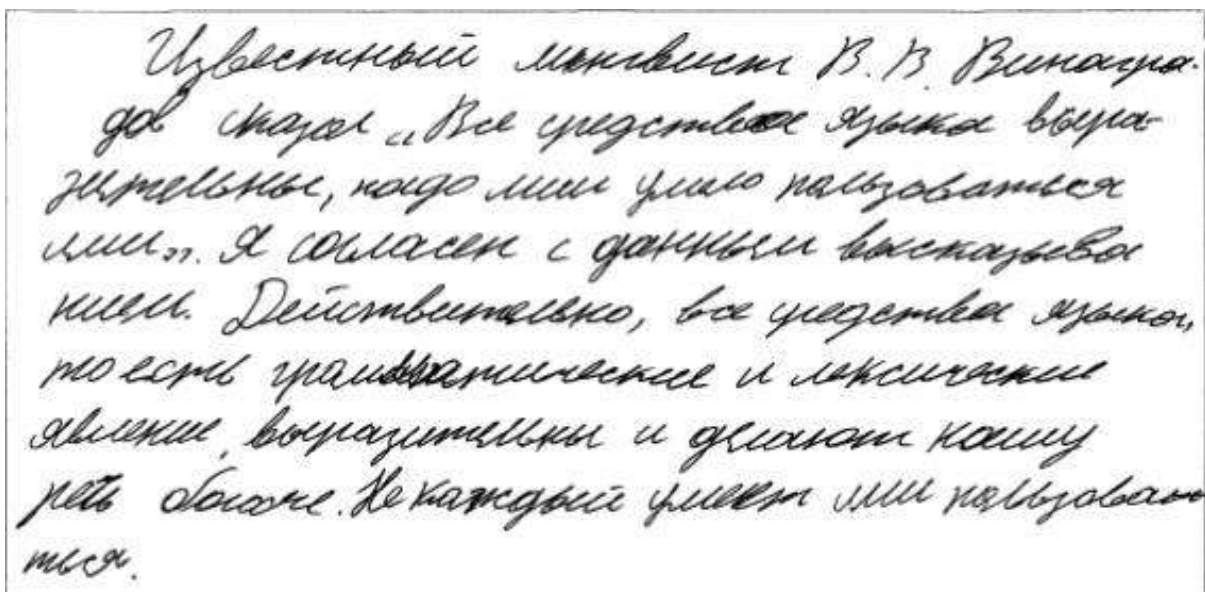 Известный лингвист В. В. Виногра-
дов сказал „Все средства языка выра-
зительны, надо лиш умело пользоваться
ими". Я согласен с данным высказыва
нием. Действительно, все средства языка,
то есть грамматические и лексические
явление, выразительны и делают нашу
реть богаче. Не каждый умеет ими пользова-
ться.